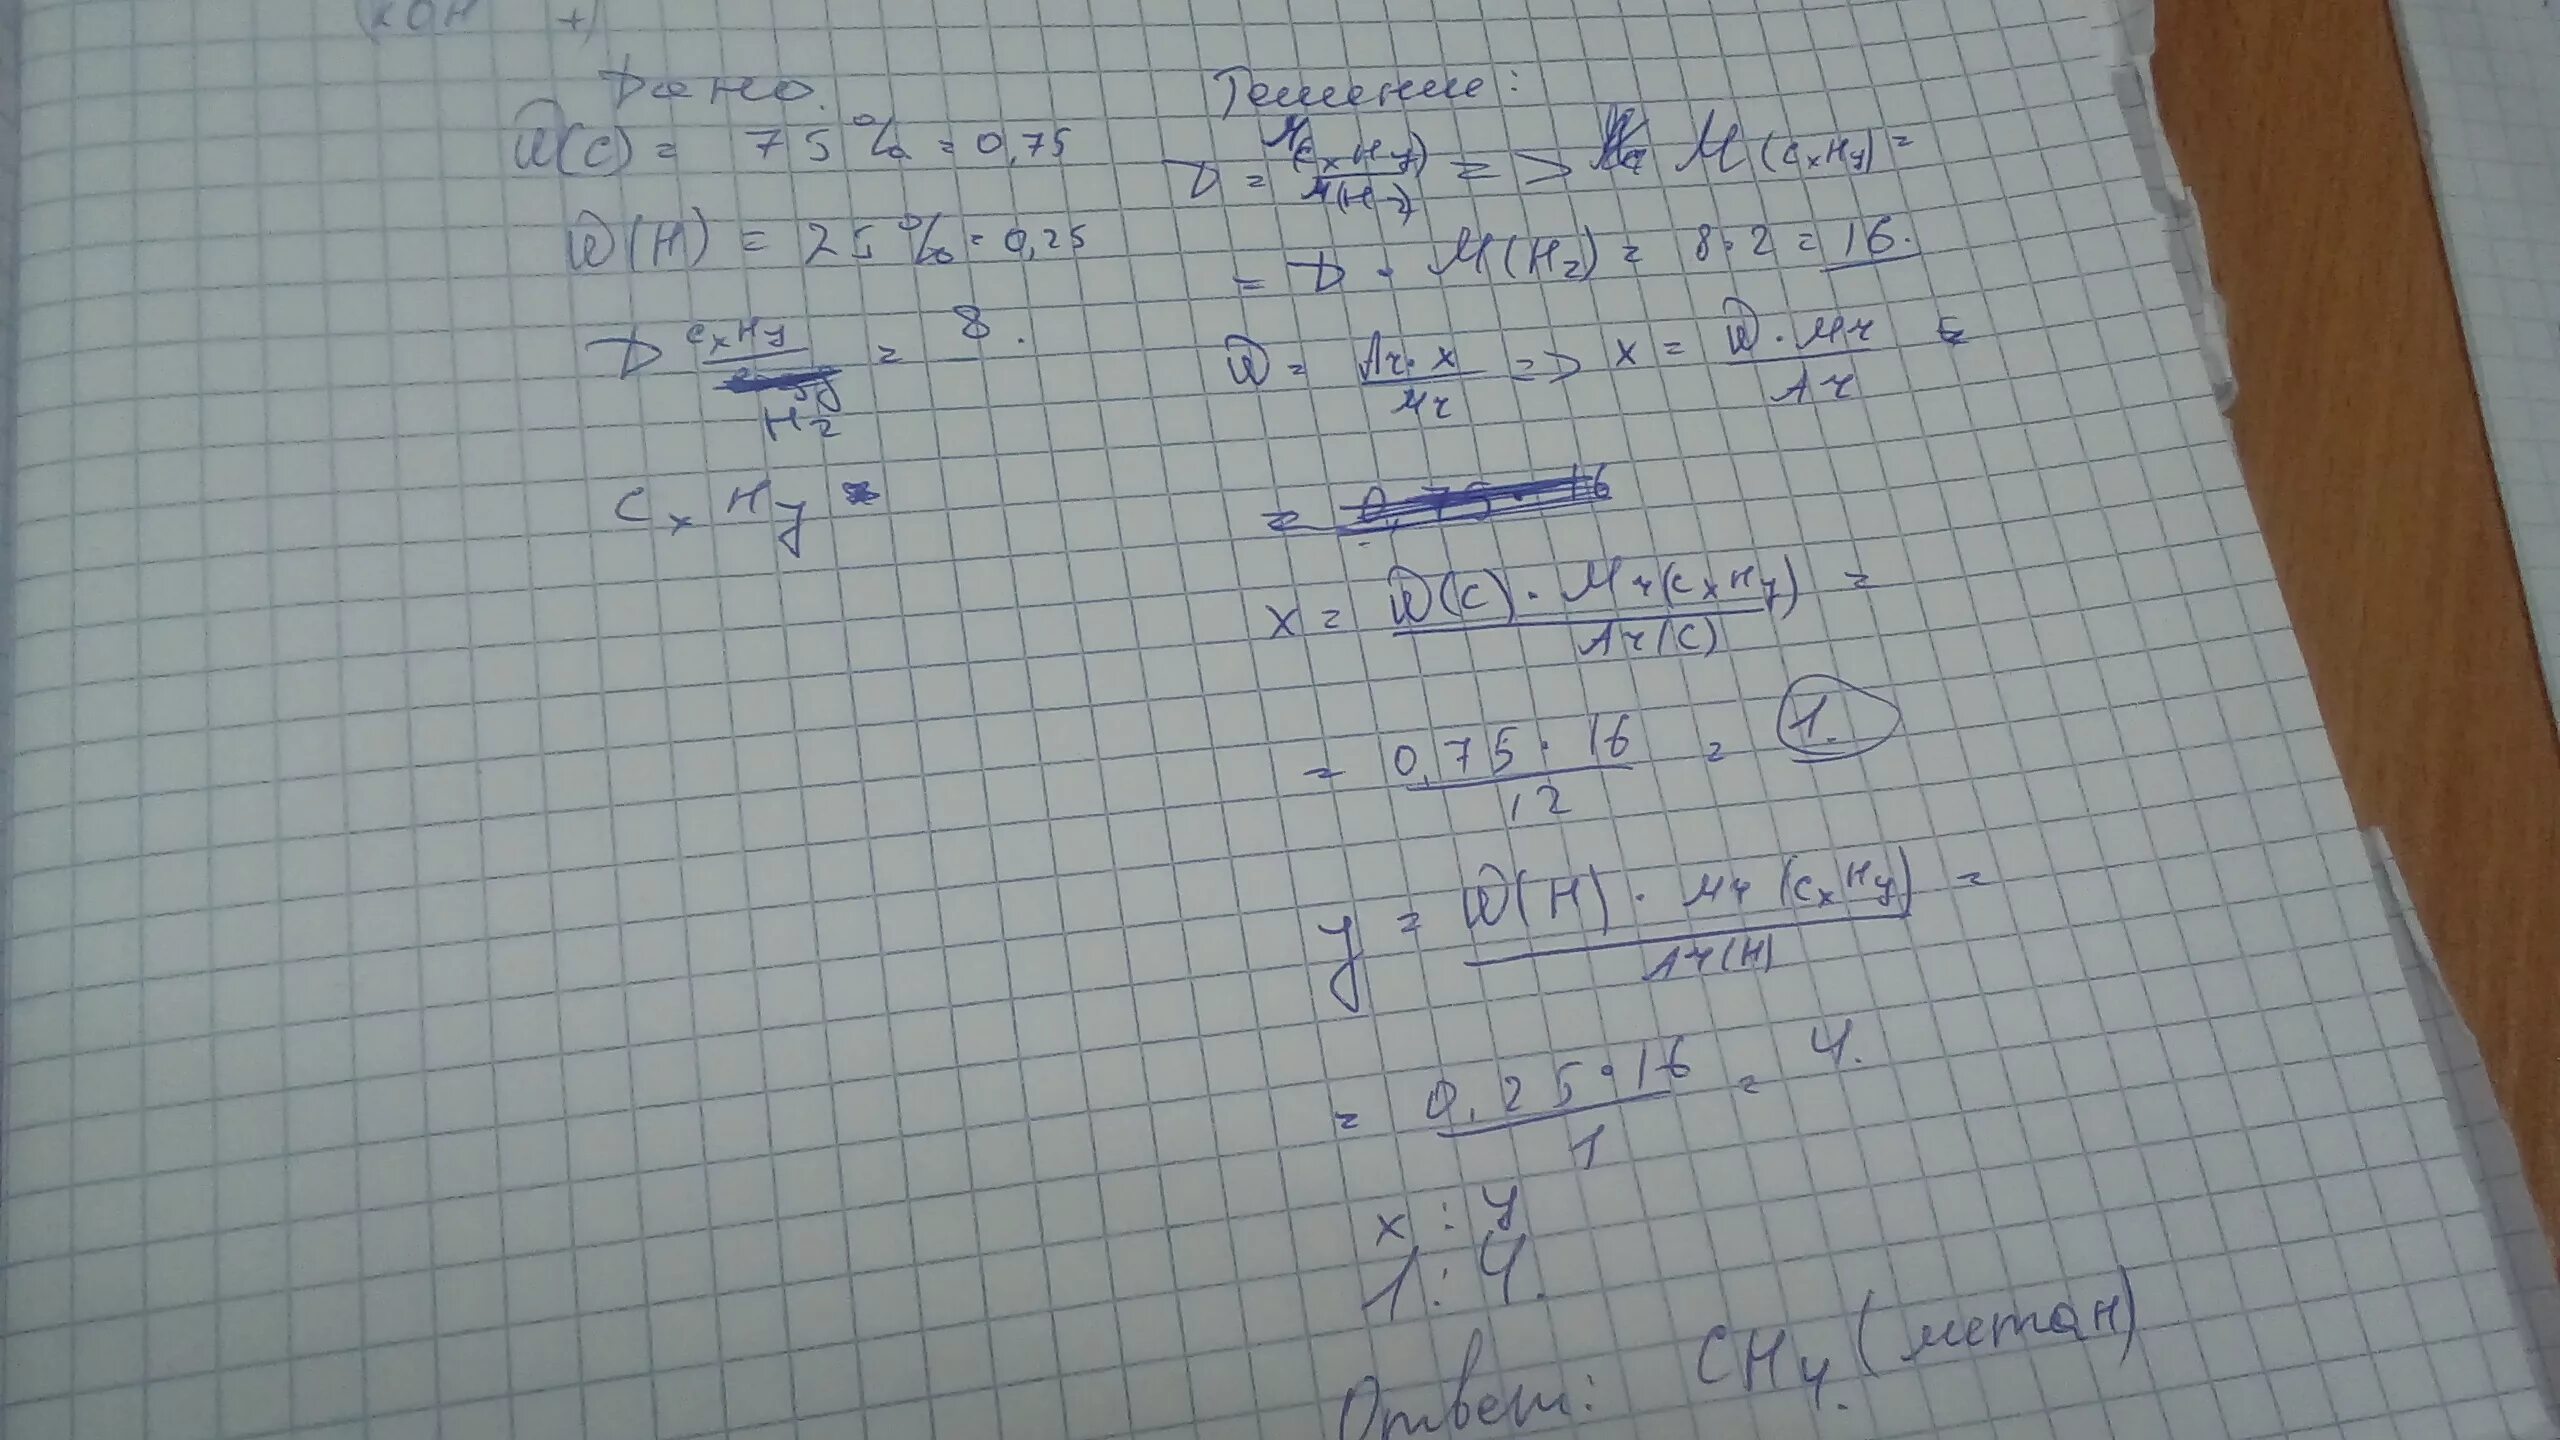 KOH +
Дано.
W(C) = 75% = 0,75
W(H) = 25% = 0,25
D CxHy / H2 = 8.
CxHy
Решение:
D = M(CxHy) / M(H2) => M(CxHy) =
= D · M(H2) = 8·2 = 16.
W = Ar·x / Mr => x = W·Mr / Ar =
= 0,75·16
x = W(C)·Mr(CxHy) / Ar(C) =
= 0,75·16 / 12 = 1.
y = W(H)·Mr(CxHy) / Ar(H) =
= 0,25·16 / 1 = 4.
x : y
1 : 4.
Ответ: CH4. (метан)